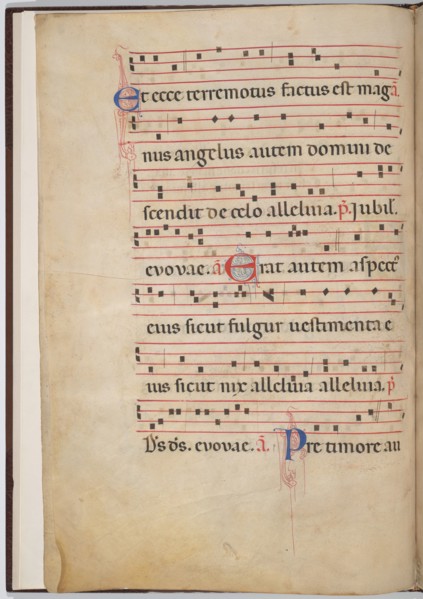 Et ecce terremotus factus est mag ā
nus angelus autem domini de
scendit de celo alleluia. p̄. Jubil.
evovae. ā Erat autem aspect⁹
eius sicut fulgur uestimenta e
ius sicut nix alleluia alleluia. p̄
D̄s d̄s. evovae. ā. Pre timore au